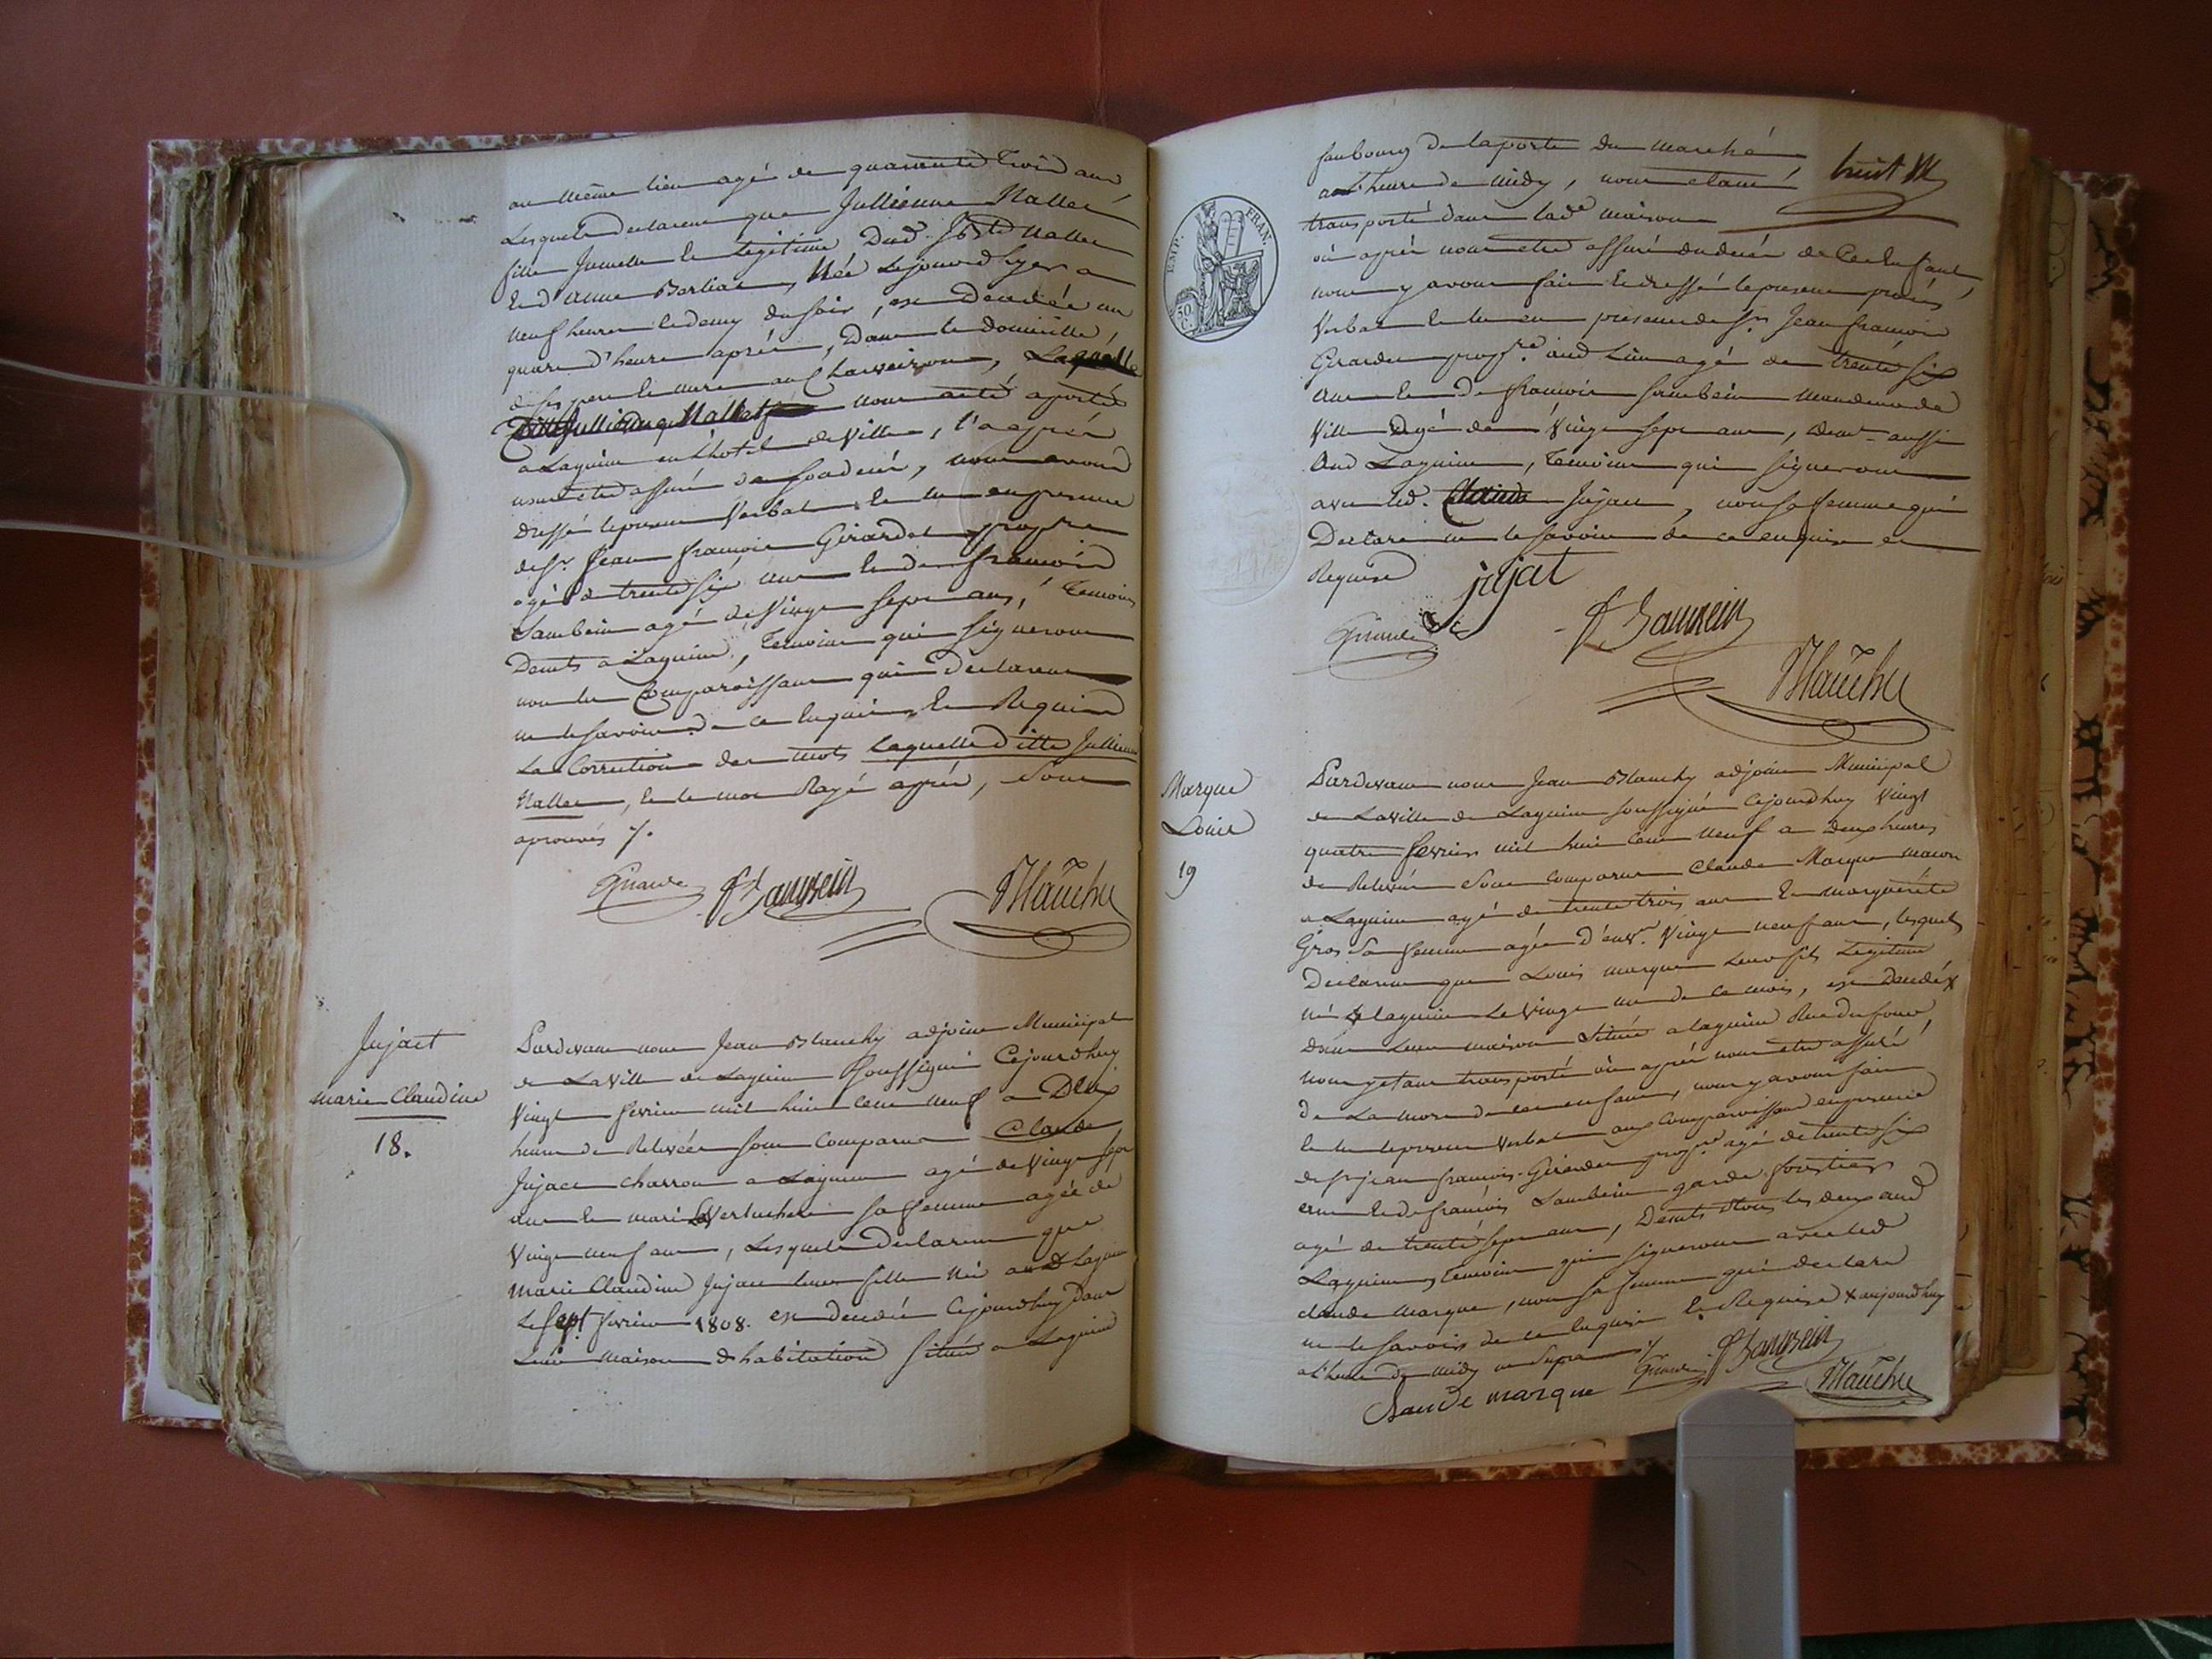 au même lieu agé de quarante trois ans
Lesquels declarent que Jullienne Mallet
fille Jumelle et Légitime Dud. Jbte Mallet
et d'anne Berliat, Née Lejourdhyer a
neuf heures et demy du soir, est Décédée un
quart d'heure après, Dans le domicille
de ses pere et mere au Charveyron, Laquelle
nous a été aporté
a Lagnieu en l'hotel de Ville, l'a après
nous etre assuré de son decés, nous avons
dressé le present Verbal et lu en presence
de Sr. Jean françois Girardet propre
agé de trente six ans et de françois
Sambein agé de Vingt sept ans, Temoins
Demts a Lagnieu, Temoins qui signeront
non les Comparoissants qui declarent
ne le savoir de ce Enquis et Requis
La Correction des mots Laquelle ditte Jullienne
Mallet, et le mot Rayé après, sont
aprouvés /.
Jujact
marie Claudine
18.
Pardevant nous Jean Blanchy adjoint Municipal
de La Ville de Lagnieu soussigné Cejourdhuy
Vingt fevrier mil huit cent neuf a Deux
heures de Relevée sont Comparus Claude
Jujact charron a Lagnieu agé de Vingt sept
ans et marie sa femme agée de
Vingt neuf ans, Lesquels Declarent que
Marie Claudine Jujact leur fille Née aud Lagnieu
Le sept fevrier 1808. est decedée Cejourdhuy Dans
Leur maison d'habitation située a Lagnieu
EMP. FRAN.
50 C.
faubourg de la porte du marché
a l'heure de midy, nous etant huit
transporté dans lade maison
où après nous etre assuré du decés de Cet Enfant
nous y avons fait et dressé le present procés
Verbal et lu en presence de Sr. Jean françois
Girardet propre aud Lieu agé de trente six
ans et de françois Sambein
Ville agé de Vingt sept ans, demt aussi
Aud Lagnieu, Temoins qui signeront
avec led. Claude Jujact, non sa femme qui
Declare ne le savoir de ce enquise et
Requise jujat
Marque
Louis
19
Pardevant nous Jean Blanchy adjoint Municipal
de La Ville de Lagnieu soussigné Cejourdhuy Vingt
quatre fevrier mil huit cent neuf a Deux heures
de Relevée sont comparus Claude Marque macon
a Lagnieu agé de trente trois ans et marguerite
Gros Sa femme agée d'envn. Vingt neuf ans, lesquels
Declarent que Louis marque leur fils Légitime
né a Lagnieu Le Vingt un de ce mois, est decedé X
dans Leur maison située a Lagnieu Rue du four
nous y etant transporté où après nous etre assuré
de La mort de cet enfant, nous y avons fait
et lu le present Verbal aux Comparoissants en presence
de Sr jean françois Girardet propre agé de trente six
ans et de françois Sambein garde forestier
agé de trente sept ans, Demts tous les deux aud
Lagnieu, Temoins qui signeront avec led
claude marque, non sa femme qui declare
ne le savoir de ce Enquise et Requise X aujourdhuy
a l'heure de midy
Claude marque